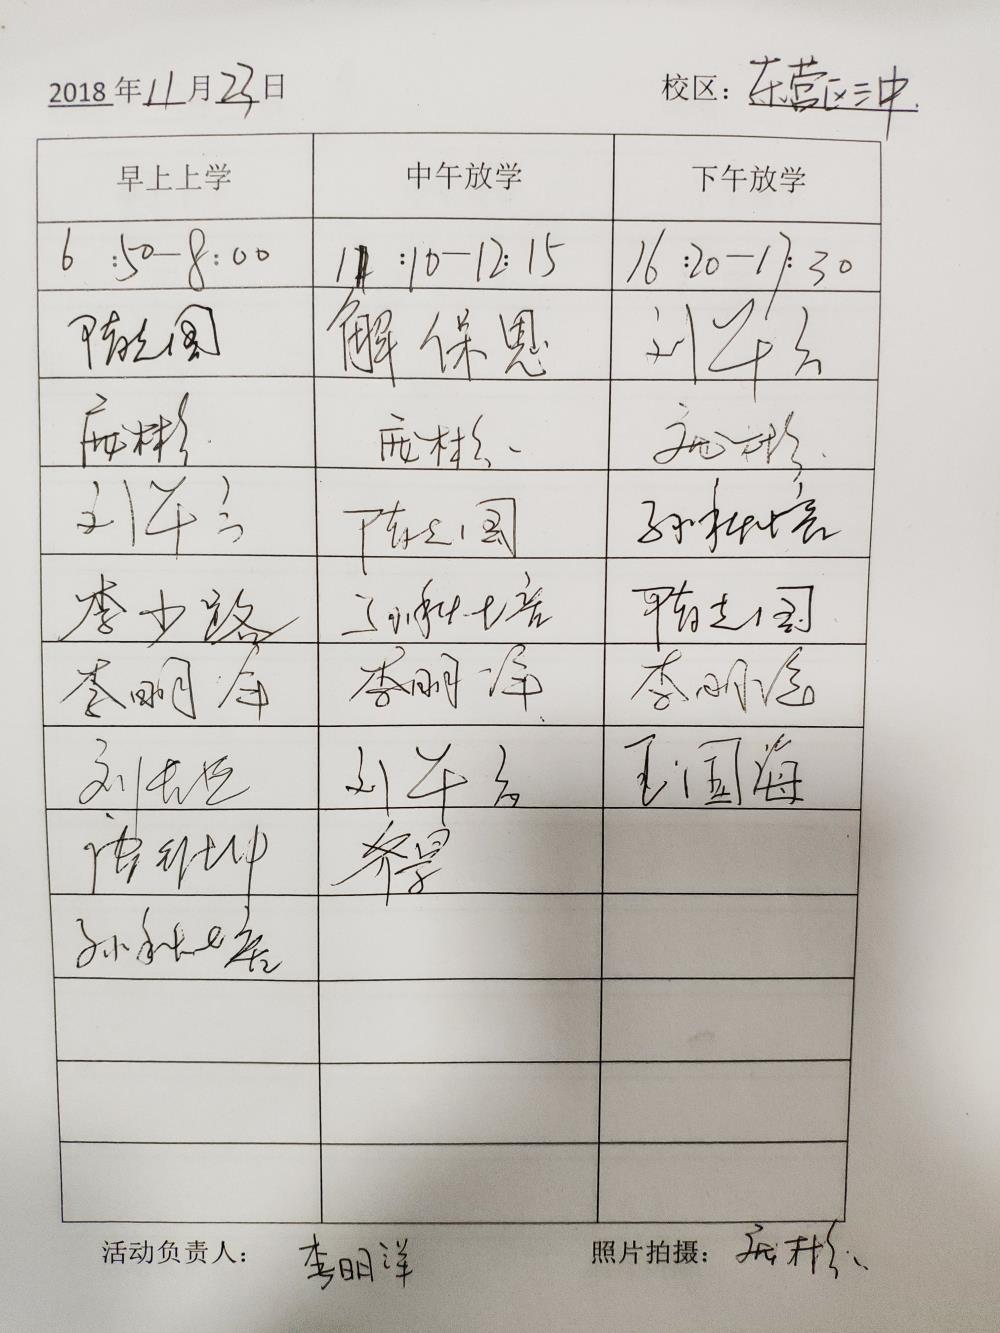 2018年11月23日 校区：东营区三中
早上上学 中午放学 下午放学
6:50—8:00 11:10—12:15 16:20—17:30
隋志国 解保恩 刘华
彬 彬 彬
刘华 隋志国 孙科培
李少路 孙科培 隋志国
李明洋 李明洋 李明洋
刘 刘华 王国海
唐 坤 乔
孙科培
活动负责人： 李明洋 照片拍摄： 彬